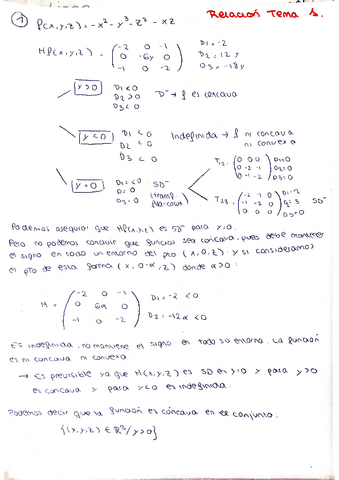 Relación Tema 1.
① f(x,y,z) = -x² - y³ - z² - xz
Hf(x,y,z) = (-2 0 -1 / 0 -6y 0 / -1 0 -2) D1 = -2 D2 = 12y D3 = -18y
y>0 D1<0 D2>0 D3<0 D⁻ → f es cóncava
y<0 D1<0 D2<0 D3<0 Indefinida → f ni cóncava
ni convexa
y=0 D1=<0 D=0 D3=0 SD⁻
T12 = (0 0 0 / 0 -2 -1 / 0 -1 -2) D1=0 D2=0 D3=0
T23 = (-2 -1 0 / -1 -2 0 / 0 0 0) D1=-2 D2=3 D3=0 SD⁻
Podemos asegurar que Hf(x,y,z) es SD⁻ para y=0.
Pero no podemos concluir que función sea cóncava, pues debe mantener
el signo en todo un entorno del pto (x,0,z) y si consideramos
el pto de esta forma (x, 0-α, z) donde α>0:
H = (-2 0 -1 / 0 6α 0 / -1 0 -2) D1 = -2 <0 D2 = -12α <0
Es indefinida, no mantiene el signo en todo su entorno. La función
es ni cóncava ni convexa
→ Es previsible ya que H(x,y,z) es SD en y=0 y para y>0
es cóncava y para y<0 es indefinida.
Podemos decir que la función es cóncava en el conjunto.
{(x,y,z) ∈ ℝ³/ y>0}